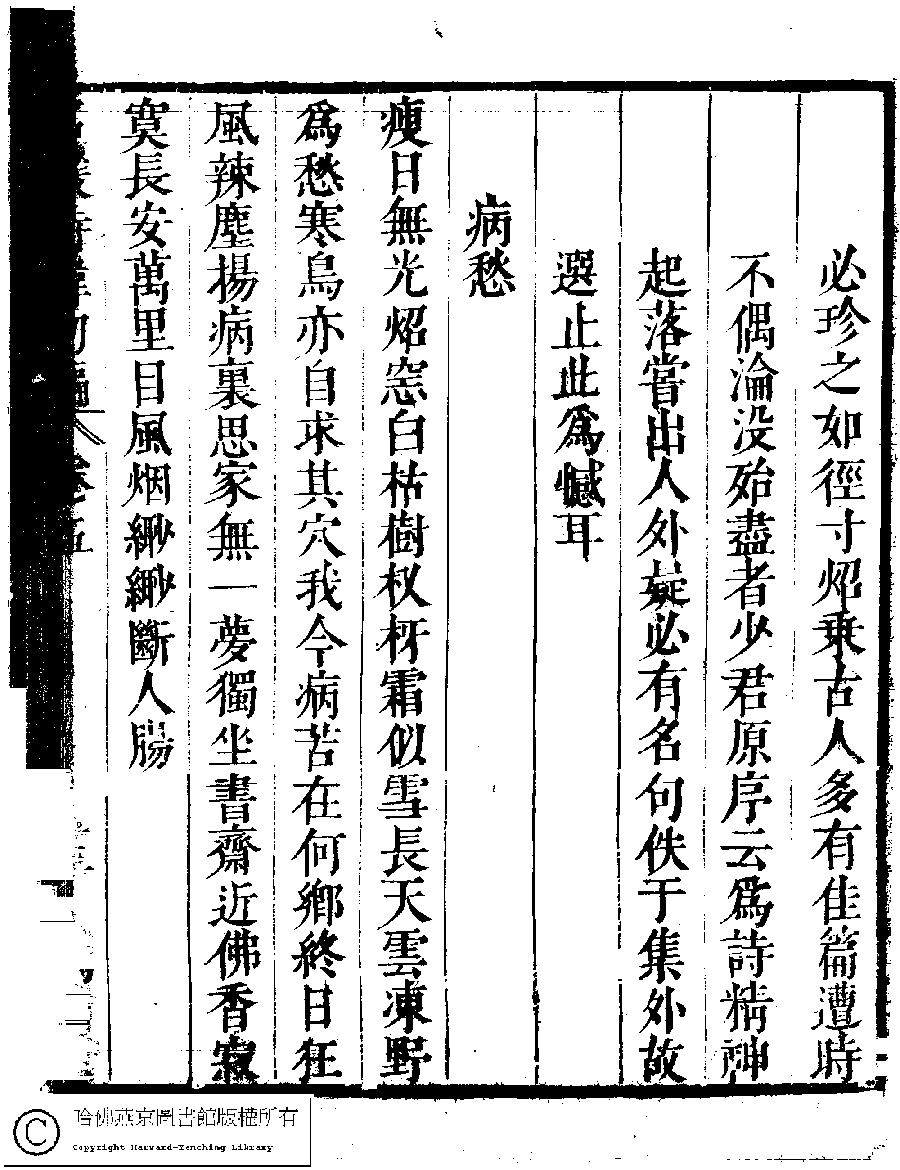 必珍之如徑寸炤乗古人多有佳篇遭時
不偶淪没殆盡者少君原序云爲詩精神
起落嘗出人外疑必有名句佚于集外故
選止此爲憾耳
病愁
瘦日無光炤窓白枯樹杈枒霜似雪長天雲凍野
爲愁寒鳥亦自求其穴我今病苦在何鄉終日狂
風辣塵揚病裏思家無一夢獨坐書齋近佛香寂
寞長安萬里目風烟緲緲斷人腸
卷五
哈佛燕京圖書館版權所有
Copyright Harvard-Yenching Library